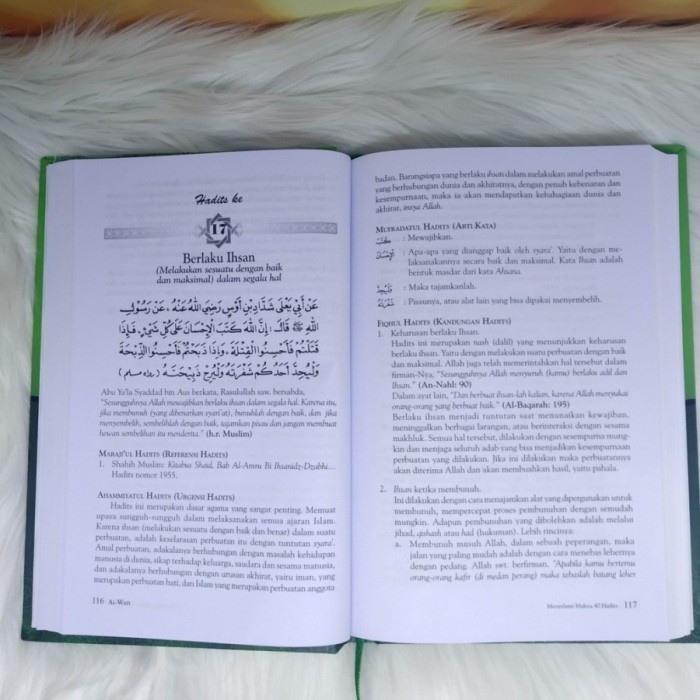 Hadits ke
17
Berlaku Ihsan
(Melakukan sesuatu dengan baik
dan maksimal) dalam segala hal
عَنْ أَبِي يَعْلَى شَدَّادِ بْنِ أَوْسٍ رَضِيَ اللهُ عَنْهُ، عَنْ رَسُوْلِ
اللهِ ﷺ قَالَ: إِنَّ اللهَ كَتَبَ الْإِحْسَانَ عَلَى كُلِّ شَيْءٍ. فَإِذَا
قَتَلْتُمْ فَأَحْسِنُوا الْقِتْلَةَ، وَإِذَا ذَبَحْتُمْ فَأَحْسِنُوا الذِّبْحَةَ
وَلْيُحِدَّ أَحَدُكُمْ شَفْرَتَهُ وَلْيُرِحْ ذَبِيْحَتَهُ (رواه مسلم)
Abu Ya'la Syaddad bin Aus berkata, Rasulullah saw. bersabda,
"Sesungguhnya Allah mewajibkan berlaku ihsan dalam segala hal. Karena itu,
jika membunuh (yang dibenarkan syari'at), bunuhlah dengan baik, dan jika
menyembelih, sembelihlah dengan baik, tajamkan pisau dan jangan membuat
hewan sembelihan itu menderita." (h.r. Muslim)
MARAJI'UL HADITS (REFERENSI HADITS)
1. Shahih Muslim: Kitabus Shaid, Bab Al-Amru Bi Ihsanidz-Dzabhi...
Hadits nomor 1955.
AHAMMIYATUL HADITS (URGENSI HADITS)
Hadits ini merupakan dasar agama yang sangat penting. Memuat
upaya sungguh-sungguh dalam melaksanakan semua ajaran Islam.
Karena ihsan (melakukan sesuatu dengan baik dan benar) dalam suatu
perbuatan, adalah keselarasan perbuatan itu dengan tuntutan syara'.
Amal perbuatan, adakalanya berhubungan dengan masalah kehidupan
manusia di dunia, sikap terhadap keluarga, saudara dan sesama manusia,
dan adakalanya berhubungan dengan urusan akhirat, yaitu iman, yang
merupakan perbuatan hati, dan Islam yang merupakan perbuatan anggota
116 AL-WAFI
badan. Barangsiapa yang berlaku ihsan dalam melakukan amal perbuatan
yang berhubungan dunia dan akhiratnya, dengan penuh kebenaran dan
kesempurnaan, maka ia akan mendapatkan kebahagiaan dunia dan
akhirat, insya Allah.
MUFRADATUL HADITS (ARTI KATA)
كَتَبَ : Mewajibkan.
الْإِحْسَانَ : Apa-apa yang dianggap baik oleh syara'. Yaitu dengan me-
laksanakannya secara baik dan maksimal. Kata Ihsan adalah
bentuk masdar dari kata Ahsana.
وَلْيُحِدَّ : Maka tajamkanlah.
شَفْرَتَهُ : Pisaunya, atau alat lain yang bisa dipakai menyembelih.
FIQHUL HADITS (KANDUNGAN HADITS)
1. Keharusan berlaku Ihsan.
Hadits ini merupakan nash (dalil) yang menunjukkan keharusan
berlaku ihsan. Yaitu dengan melakukan suatu perbuatan dengan baik
dan maksimal. Allah juga telah memerintahkan hal tersebut dalam
firman-Nya, "Sesungguhnya Allah menyuruh (kamu) berlaku adil dan
Ihsan." (An-Nahl: 90)
Dalam ayat lain, "Dan berbuat ihsan-lah kalian, karena Allah menyukai
orang-orang yang berbuat baik." (Al-Baqarah: 195)
Berlaku ihsan menjadi tuntutan saat menunaikan kewajiban,
meninggalkan berbagai larangan, atau berinteraksi dengan sesama
makhluk. Semua hal tersebut, dilakukan dengan sesempurna mung-
kin dan menjaga seluruh adab yang bisa menjadikan kesempurnaan
perbuatan yang dilakukan. Jika ini dilakukan maka perbuatannya
akan diterima Allah dan akan membuahkan hasil, yaitu pahala.
2. Ihsan ketika membunuh.
Ini dilakukan dengan cara menajamkan alat yang dipergunakan untuk
membunuh, mempercepat proses pembunuhan dengan semudah
mungkin. Adapun pembunuhan yang dibolehkan adalah melalui
jihad, qishash atau had (hukuman). Lebih rincinya:
a. Membunuh musuh Allah, dalam sebuah peperangan, maka
jalan yang paling mudah adalah dengan cara menebas lehernya
dengan pedang. Allah swt. berfirman, "Apabila kamu bertemu
orang-orang kafir (di medan perang) maka tebaslah batang leher
Menyelami Makna 40 Hadits 117